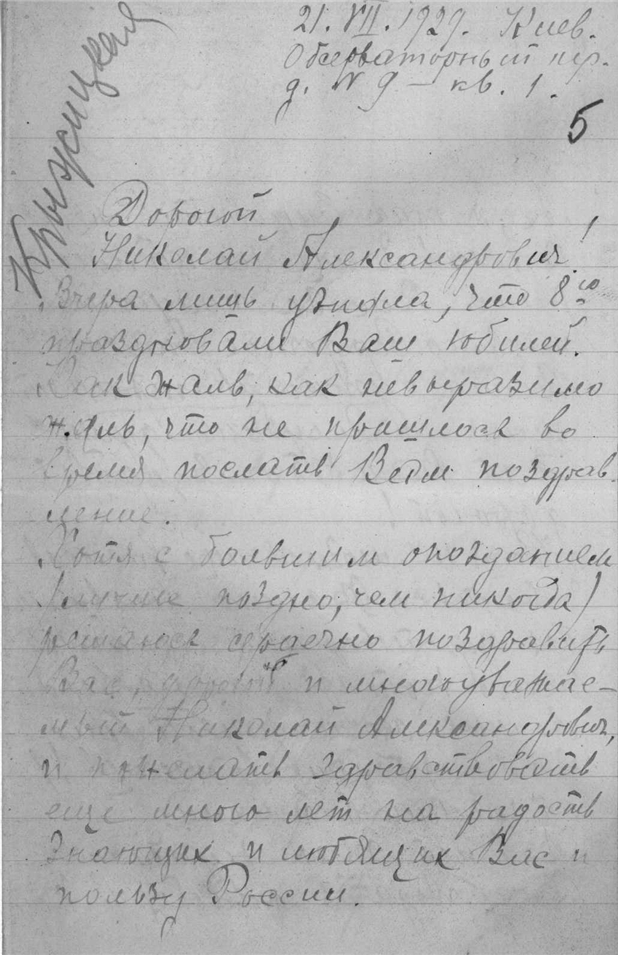 Крыжицкая
21. VII. 1929. Киев.
Обсерваторный пр.
д. № 9 – кв. 1.
5
Дорогой
Николай Александрович!
Вчера лишь узнала, что 8го
праздновали Ваш юбилей.
Как жаль, как невыразимо
жаль, что не пришлося во
время послать Вам поздрав-
ление.
Хотя с большим опозданием
(лучше поздно, чем никогда)
решаюся сердечно поздравить
Вас, дорогой и многоуважае-
мый Николай Александрович,
и пожелать здравствовать
еще много лет на радость
знающих и любящих Вас и
пользу России.